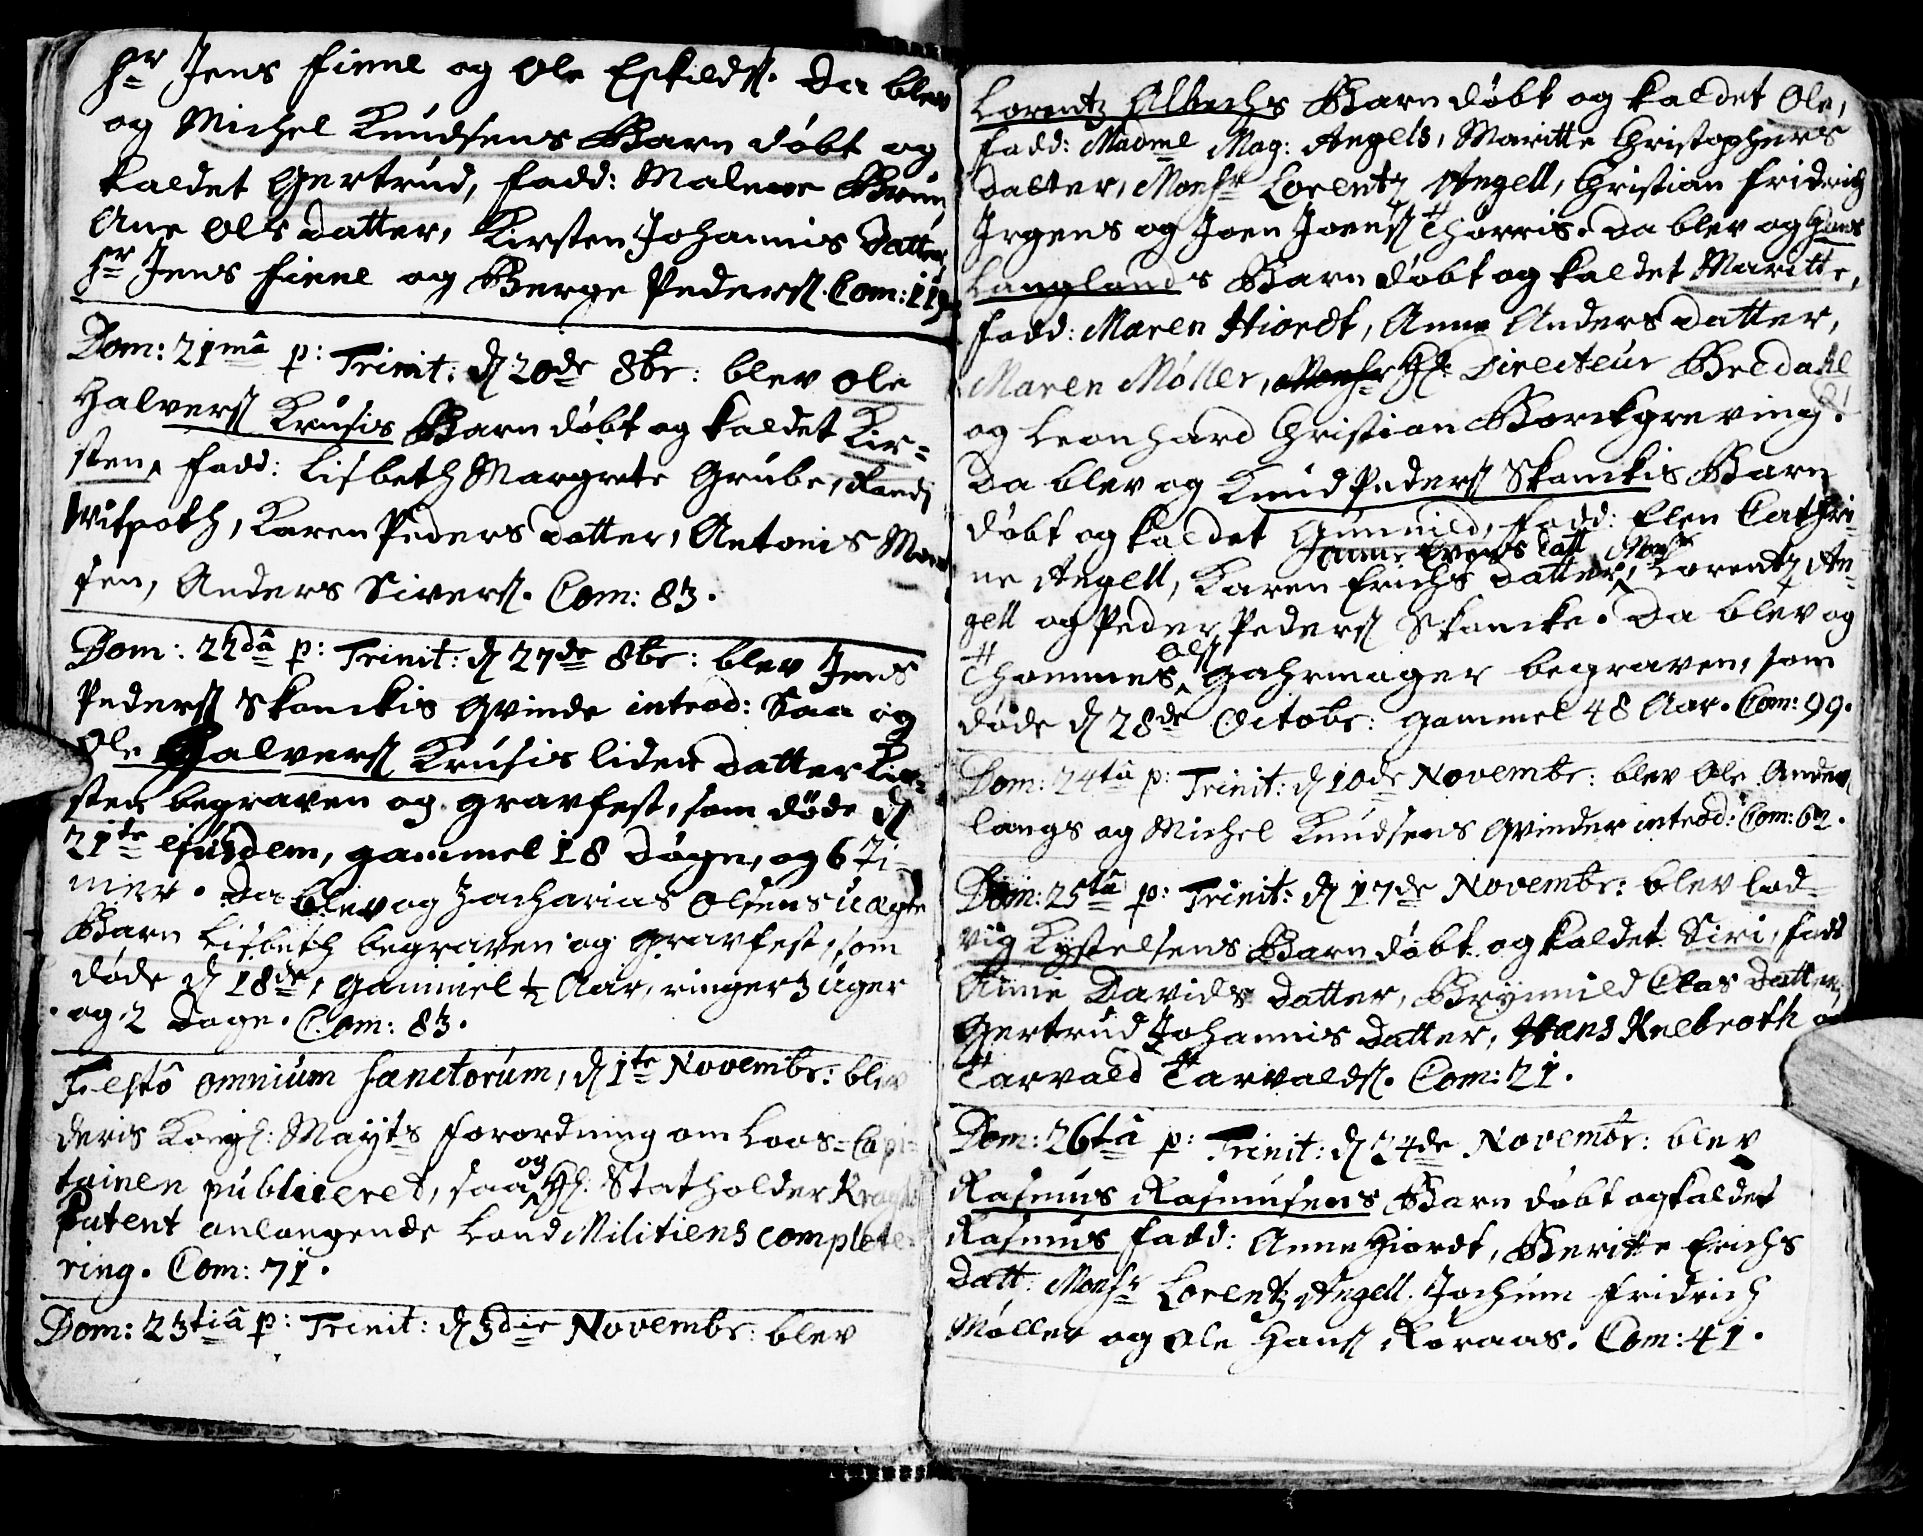 Hr Jens Finne og Ole Eskilds. Da blev
og Michel Knudsens Barn døbt og
kaldet Gertrud, fadd: Malene Brun,
Ane Ols datter, Kirsten Johannis datter,
Hr Jens Finne og Berge Peders. Com: 119.
Dom: 21mâ p: Trinit: d 20de 8br: blev Ole
Halvers Krusis Barn døbt og kaldet Kir=
sten, fadd: Lisbeth Margrete Grube, Randi
Witpoth, Karen Peders datter, Antonis
sen, Anders Sivers. Com: 83.
Dom: 22dâ p: Trinit: d 27de 8br: blev Jens
Peders Skanckis Qvinde introd: Saa og
Ole Halvers Krusis liden datter Kir=
sten begraven og gravfest, som døde d
21te ejusdem, gammel 18 døgn, og 6 Ti=
mer. Da blev og Zacharias Olsens uægte
Barn Lisbeth begraven og gravfest, som
døde d 18de, gammel ½ Aar, ringer 3 uger
og 2 dage. Com: 83.
Festô omnium sanctorum, d 1te Novembr: blev
deris Kongl: Mayts forordning om Loos=Capi=
tainen publiceret, saa og Hl: Statholder
Patent anlangende Land Militiens complete=
ring. Com: 71.
Dom: 23tiâ p: Trinit: d 3die Novembr: blev
Lorentz Albechs Barn døbt og kaldet Ole,
fadd: Madme Mag: Angels, Maritte Christophers
datter, Monsr Lorentz Angell, Christian Fridrich
Irgens og Joen Joens Thorris. Da blev og Hans
Langlands Barn døbt og kaldet Maritte,
fadd: Maren Hiordt, Anne Anders datter,
Maren Møller, Monsr Hl: Directeur Bredahl
og Leonhard Christian Borckgreving.
Da blev og Knud Peders Skanckis Barn
døbt og kaldet Gunnild, fadd: Elen Cathri=
ne Angell, Karen Erichs datter, Anne Evens datt Monsr Lorentz An=
gell og Peder Peders Skancke. Da blev og
Thommes Ols Gahrmager begraven, som
døde d 28de Octobr: gammel 48 Aar. Com: 99.
Dom: 24tâ p: Trinit: d 10de Novembr: blev Ole Anders
langs og Michel Knudsens Qvinder introd: Com: 62.
Dom: 25tâ p: Trinit: d 17de Novembr: blev Lod=
vig Kystelsens Barn døbt og kaldet Siri, fadd
Anne Davids datter, Brynnild Clas datter,
Gertrud Johannis datter, Hans Knebroth og
Tarvald Tarvalds. Com: 21.
Dom: 26tâ p: Trinit: d 24de Novembr: blev
Rasmus Rasmusens Barn døbt og kaldet
Rasmus fadd: Anne Hiordt, Beritte Erichs
datt. Monsr Lorentz Angell. Jochum Fridrich
Møller og Ole Hans Røraas. Com: 41.